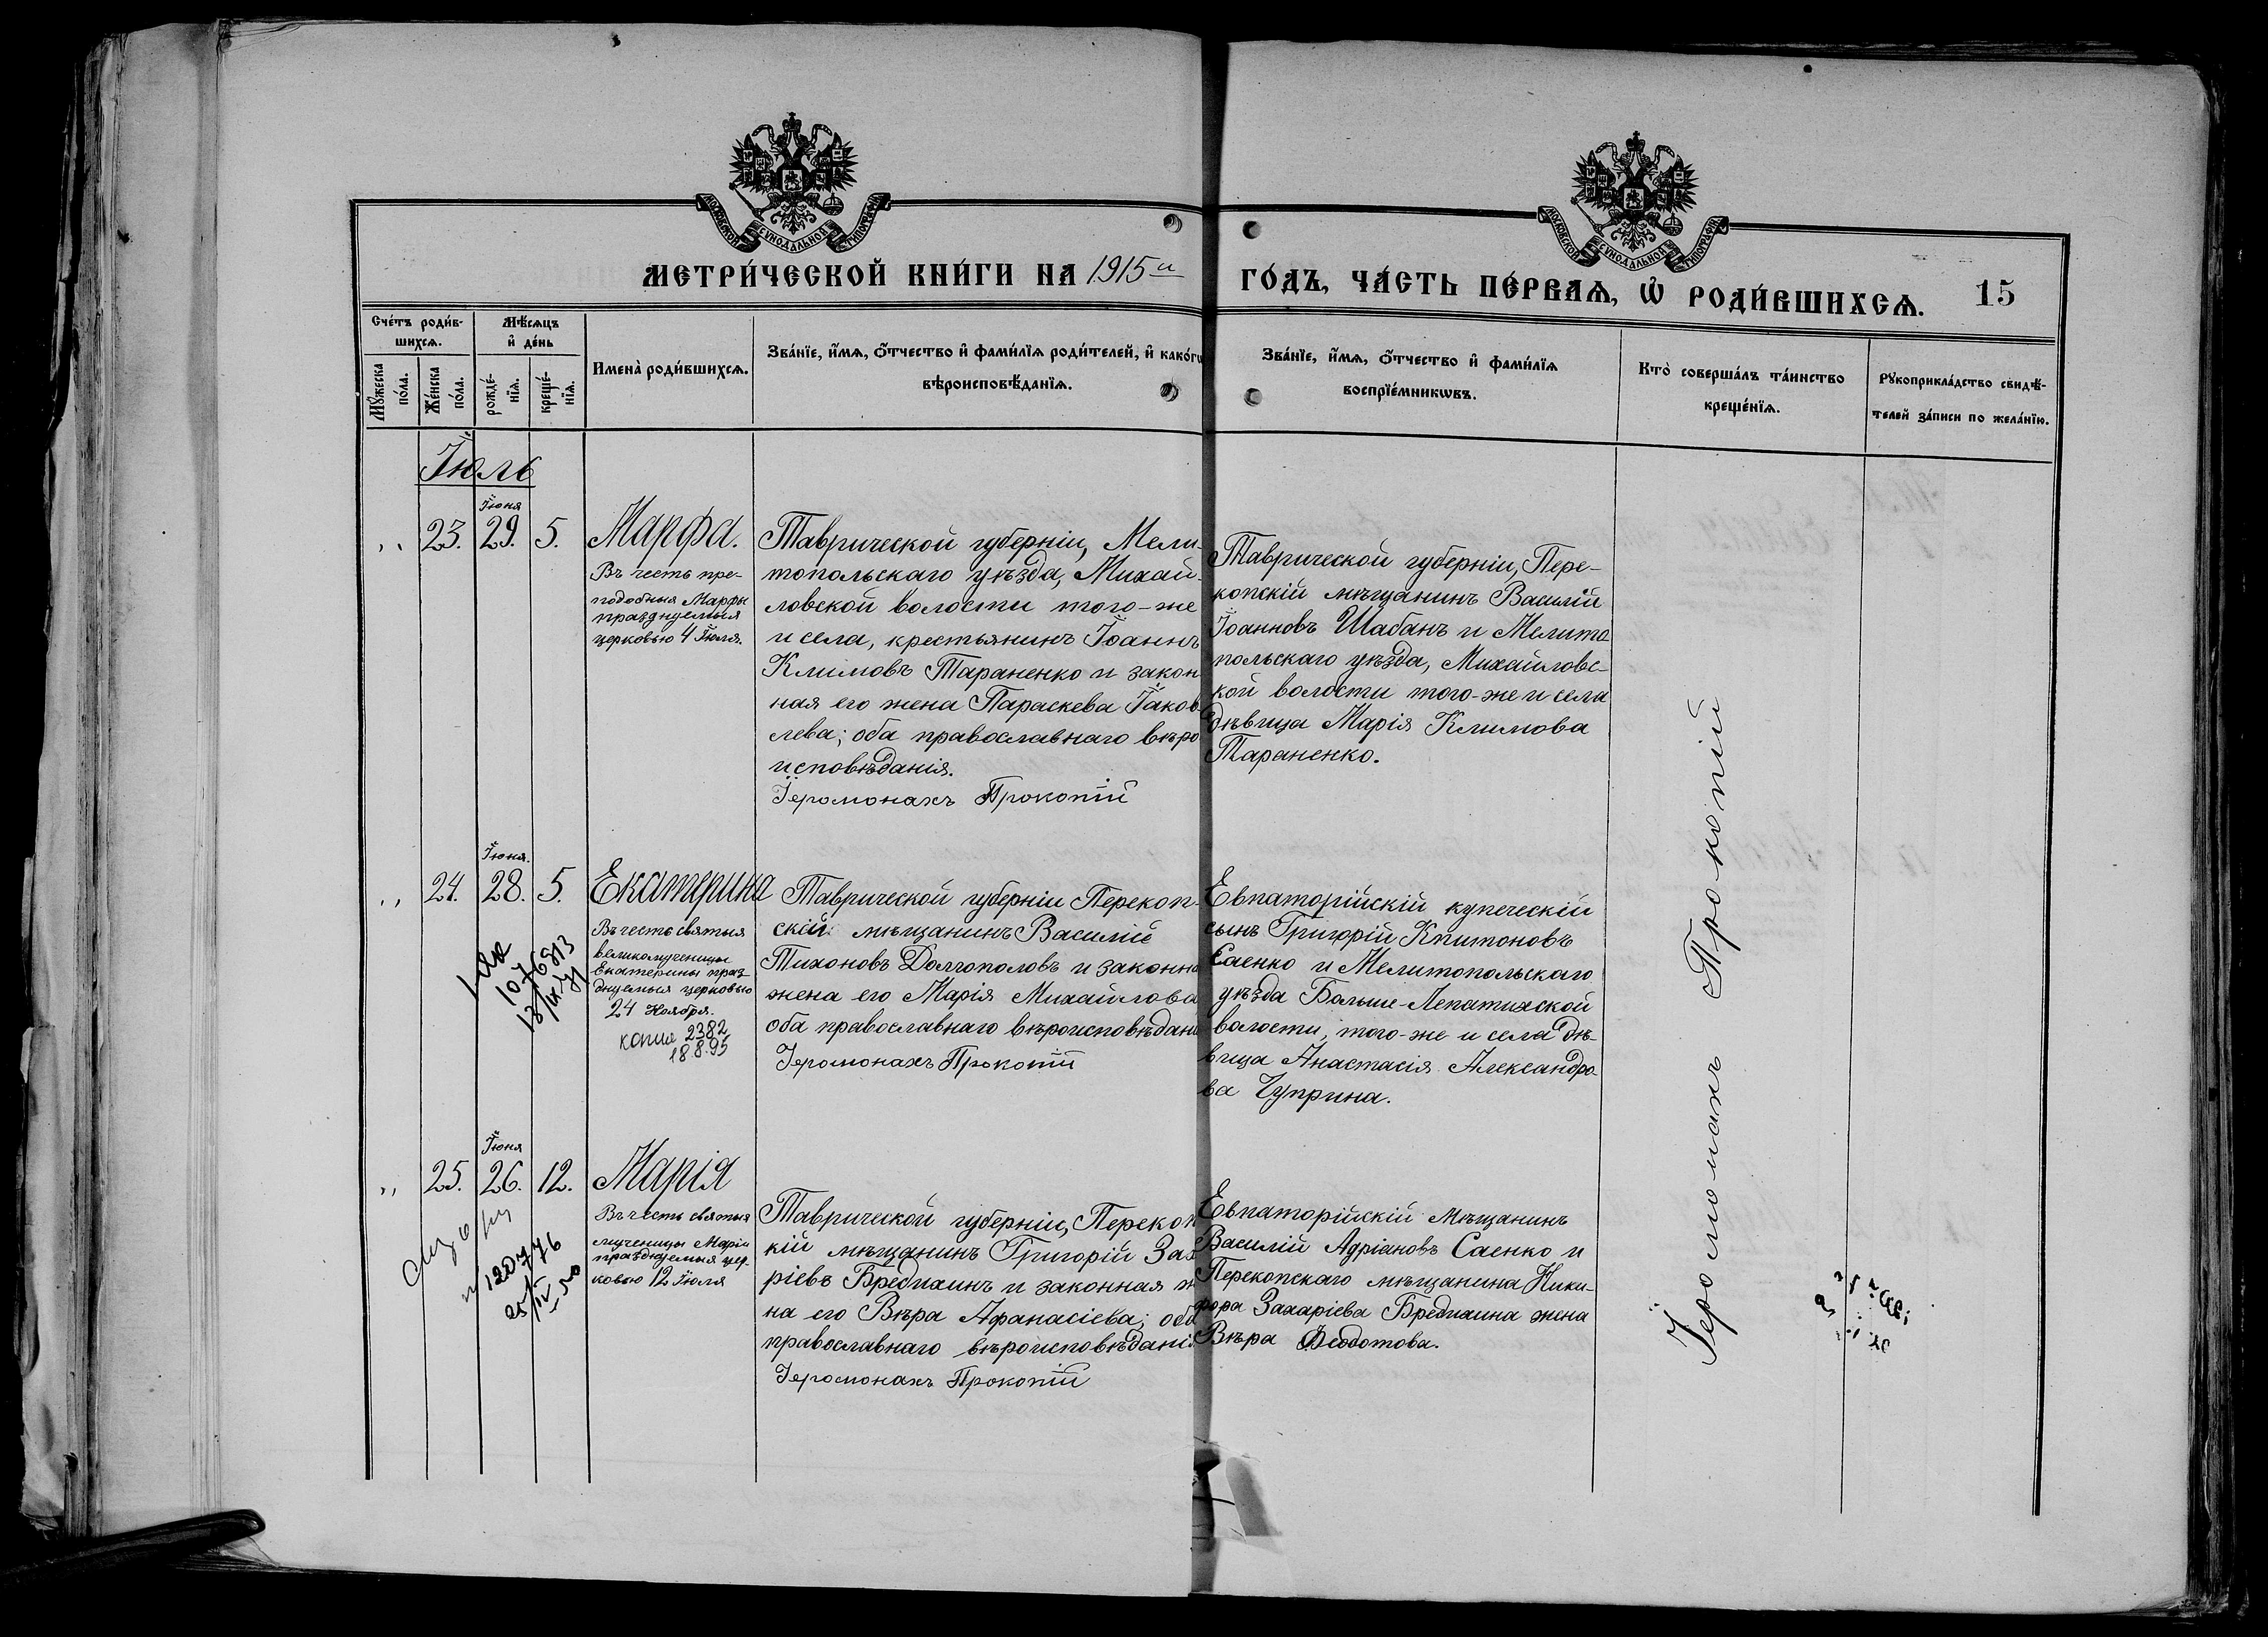 МОСКОВСКОЙ СУНОДАЛЬНОЙ ТИПОГРАФІИ
МОСКОВСКОЙ СУНОДАЛЬНОЙ ТИПОГРАФІИ
МЕТРИ́ЧЕСКОЙ КНИ́ГИ НА 1915й
ГО́ДЪ, ЧА́СТЬ ПЕ́РВАѦ, Ѡ РОДИ́ВШИХСѦ.
15
Сче́тъ роди́в-
шихсѧ.
Мѣ́сѧцъ
и҆ де́нь
Мꙋ́жеска
по́ла.
Же́нска
по́ла.
рожде́-
нїѧ.
креще́-
нїѧ.
И҆мена̀ роди́вшихсѧ.
Зва́нїе, и҆́мѧ, ѻ҆́тчество и҆ фами́лїѧ роди́телей, и҆ како́гѡ
вѣроисповѣ́данїѧ.
Зва́нїе, и҆́мѧ, ѻ҆́тчество и҆ фами́лїѧ
воспрїе́мникѡвъ.
Кто̀ соверша́лъ та́инство
креще́нїѧ.
Рꙋкоприкла́дство свидѣ́-
телей за́писи по жела́нїю.
Іюль
Іюня
,, 23. 29. 5.
Марфа.
Въ честь пре-
подобныя Марфы
празднуемыя
церковью 4 Іюля.
Таврической губерніи, Мели-
топольскаго уѣзда, Михай-
ловской волости того-же
и села, крестьянинъ Іоаннъ
Климовъ Тараненко и закон
ная его жена Параскева Іаков
лева; оба православнаго вѣро
исповѣданія.
Іеромонахъ Прокопій
Таврической губерніи, Пере-
копскій мѣщанинъ Василій
Іоанновъ Шабанъ и Мелито
польскаго уѣзда, Михайловс-
кой волости того-же и села
дѣвица Марія Климова
Тараненко.
Іюня.
,, 24. 28. 5.
Екатерина
Въ честь святыя
великомученицы
Екатерины праз-
днуемыя церковью
24 Ноября.
копия 2382
18.8.95
1076813
Таврической губерніи Перекоп-
скій мѣщанинъ Василій
Тихоновъ Долгополовъ и законна
жена его Марія Михайлова
оба православнаго вѣроисповѣдані
Іеромонахъ Прокопій
Евпаторійскій купеческій
сынъ Григорій Кпитоновъ
Саенко и Мелитопольскаго
уѣзда Больше-Лепатихской
волости, того-же и села дѣ-
вица Анастасія Александро
ва Чуприна.
Іюня
,, 25. 26. 12.
Марія
Въ честь святыя
мученицы Маріи
празднуемыя цер-
ковью 12 Іюля
120776
Таврической губерніи, Перекоп
кій мѣщанинъ Григорій Зах
ріевъ Бредихинъ и законная ж
на его Вѣра Афанасіева; оба
православнаго вѣроисповѣданія
Іеромонахъ Прокопій
Евпаторійскій мѣщанинъ
Василій Адріановъ Саенко и
Перекопскаго мѣщанина Ники-
фора Захаріева Бредихина жена
Вѣра Феодотова.
Іеромонахъ Прокопій